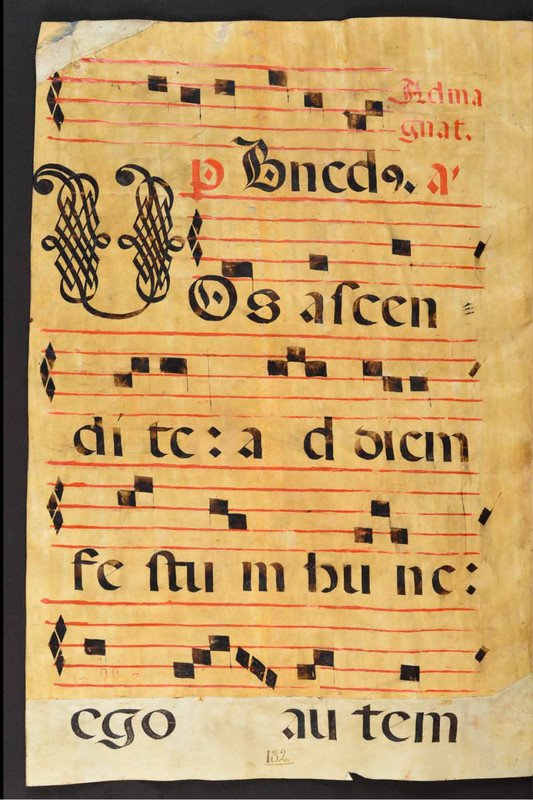 Ad ma
gnat.
p Bnedꝰ. aʼ
VOs aſcen
di te: a d diem
fe ſtu m hu nc:
ego au tem
132